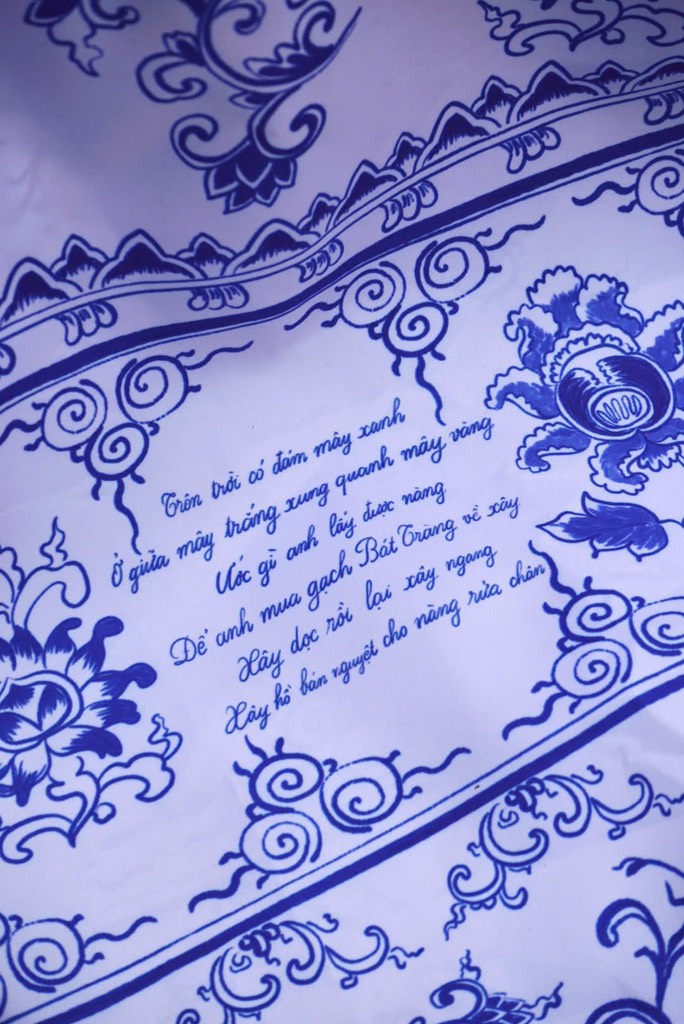 Trên trời có đám mây xanh
Ở giữa mây trắng xung quanh mây vàng
Ước gì anh lấy được nàng
Để anh mua gạch Bát Tràng về xây
Xây dọc rồi lại xây ngang
Xây hồ bán nguyệt cho nàng rửa chân